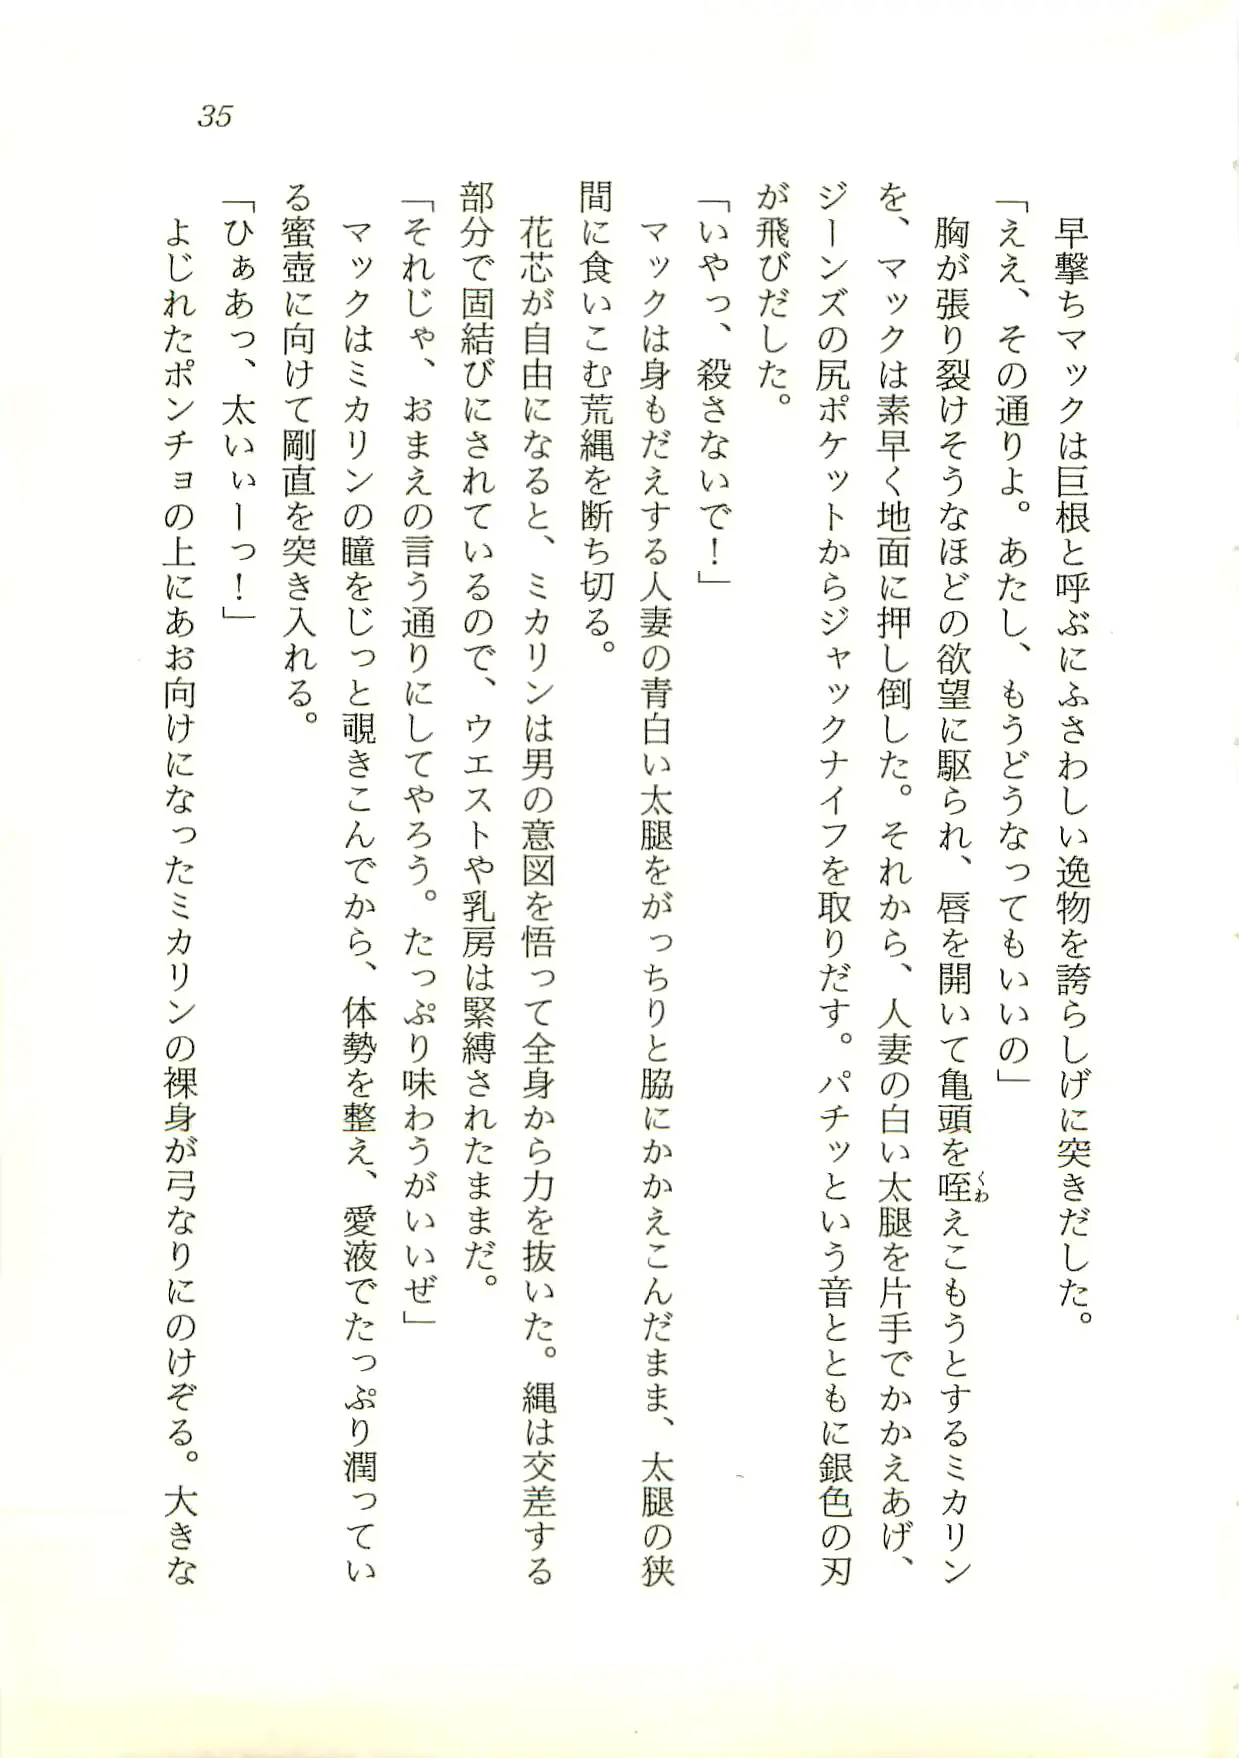 35
早撃ちマックは巨根と呼ぶにふさわしい逸物を誇らしげに突きだした。
「ええ、その通りよ。あたし、もうどうなってもいいの」
胸が張り裂けそうなほどの欲望に駆られ、唇を開いて亀頭を咥えこもうとするミカリン
くわ
を、マックは素早く地面に押し倒した。それから、人妻の白い太腿を片手でかかえあげ、
ジーンズの尻ポケットからジャックナイフを取りだす。パチッという音とともに銀色の刃
が飛びだした。
「いやっ、殺さないで！」
マックは身もだえする人妻の青白い太腿をがっちりと脇にかかえこんだまま、太腿の狭
間に食いこむ荒縄を断ち切る。
花芯が自由になると、ミカリンは男の意図を悟って全身から力を抜いた。縄は交差する
部分で固結びにされているので、ウエストや乳房は緊縛されたままだ。
「それじゃ、おまえの言う通りにしてやろう。たっぷり味わうがいいぜ」
マックはミカリンの瞳をじっと覗きこんでから、体勢を整え、愛液でたっぷり潤ってい
る蜜壺に向けて剛直を突き入れる。
「ひぁあっ、太いぃーっ！」
よじれたポンチョの上にあお向けになったミカリンの裸身が弓なりにのけぞる。大きな